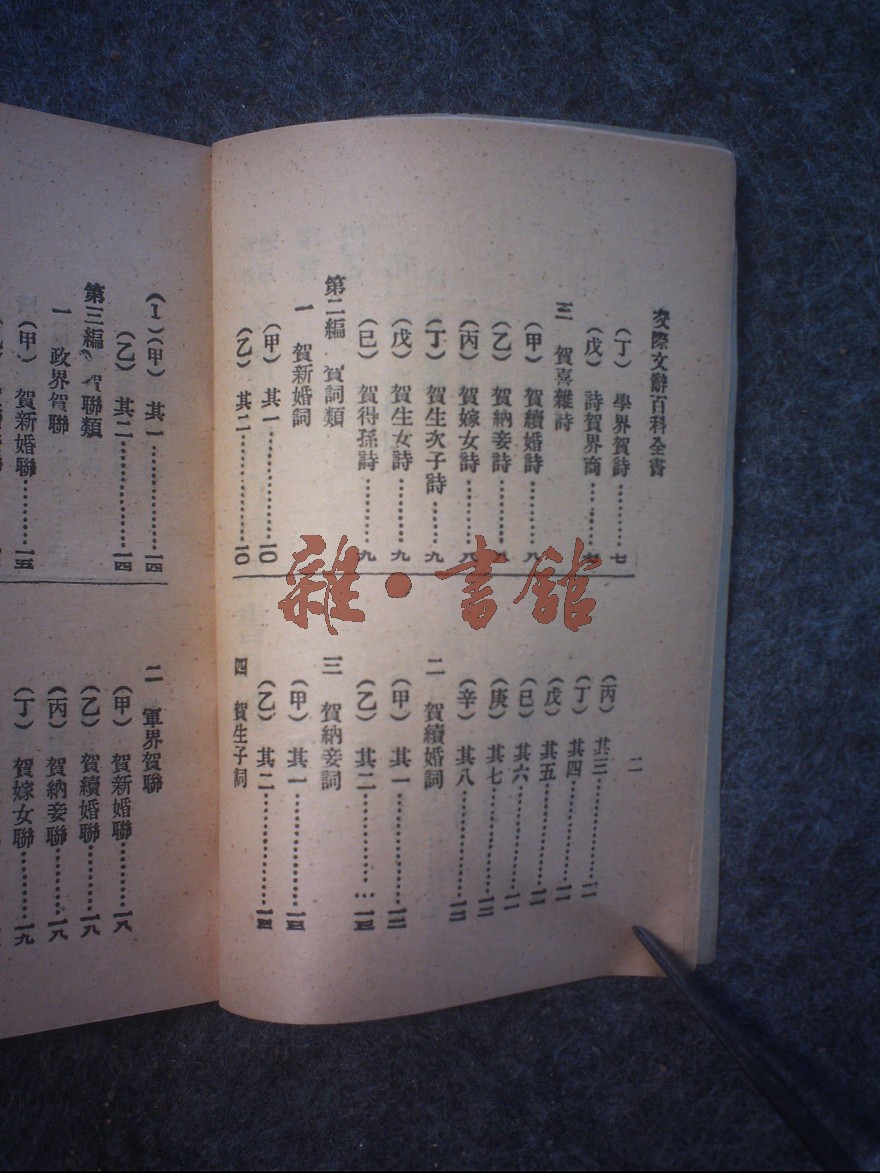 交際文辭百科全書
二
（丁）學界賀詩………七
（戊）詩賀界商
三 賀喜雜詩
（甲）賀續婚詩………八
（乙）賀納妾詩………八
（丙）賀嫁女詩………八
（丁）賀生次子詩……九
（戊）賀生女詩………九
（巳）賀得孫詩………九
第二編 賀詞類
一 賀新婚詞
（甲）其一…………一〇
（乙）其二…………一〇
（丙）其三…………一一
（丁）其四…………一一
（戊）其五…………一一
（巳）其六…………一一
（庚）其七…………一二
（辛）其八…………一二
二 賀續婚詞
（甲）其一…………一二
（乙）其二…………一三
三 賀納妾詞
（甲）其一…………一三
（乙）其二…………一四
四 賀生子詞
（1）（甲）其一…………一四
（乙）其二…………一四
第三編 賀聯類
一 政界賀聯
（甲）賀新婚聯………一五
二 軍界賀聯
（甲）賀新婚聯………一八
（乙）賀續婚聯………一八
（丙）賀納妾聯………一八
（丁）賀嫁女聯………一九
雜·書館